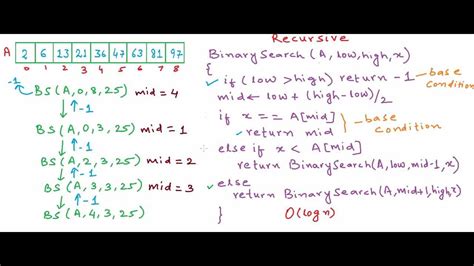 A 2 6 13 21 36 47 63 81 97
0 1 2 3 4 5 6 7 8
-1
BS(A,0,8,25) mid = 4
-1
BS(A,0,3,25) mid = 1
-1
BS(A,2,3,25) mid = 2
-1
BS(A,3,3,25) mid = 3
-1
BS(A,4,3,25)
Recursive
BinarySearch (A,low,high,x)
{
if (low >high) return -1 - base condition
mid ← low + (high-low)/2
if x == A[mid]
return mid
base condition
else if x < A[mid]
return BinarySearch(A,low,mid-1,x)
else
return BinarySearch(A,mid+1,high,x)
} O(log n)